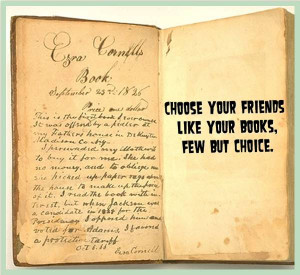 Ezra Cornell's
Book
September 23rd 1826
Price one dollar
This is the first book I ever owned
It was offered by a pedler at
my Fathers house in DeRuyter
Madison Co. N.Y.
I persuaded my Mother
to buy it for me. She had
no money, and to oblige
me picked up paper rags about
the house to make up the price
of it. I read the book with in-
terest, but when Jackson was
a candidate in 1828 for the
Presidency I opposed him and
voted for Adams. I favored
a protective tariff.
Ezra Cornell
CHOOSE YOUR FRIENDS
LIKE YOUR BOOKS,
FEW BUT CHOICE.